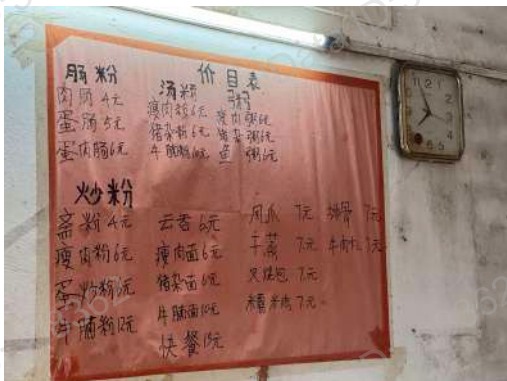 价目表
肠粉
肉肠 4元
蛋肠 5元
蛋肉肠 6元
汤粉
瘦肉粉 6元
猪杂粉 6元
牛腩粉 10元
粥
瘦肉粥 6元
猪杂粥 6元
鱼 粥 6元
炒粉
斋粉 4元
瘦肉粉 6元
蛋炒粉 6元
牛腩粉 12元
云吞 6元
瘦肉面 6元
猪杂面 6元
牛腩面 10元
快餐 13元
凤爪 7元
干蒸 7元
叉烧包 7元
糯米鸡 7元
排骨 7元
牛肉丸 7元